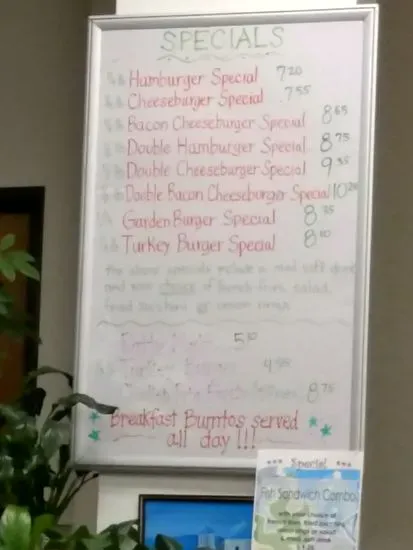 SPECIALS
Hamburger Special 7.20
Cheeseburger Special 7.55
Bacon Cheeseburger Special 8.65
Double Hamburger Special 8.75
Double Cheeseburger Special 9.35
Double Bacon Cheeseburger Special 10.20
Garden Burger Special 8.35
Turkey Burger Special 8.10
The above specials include a med soft drink
and your choice of french fries, salad,
fried zucchini or onion rings
5.10
4.95
8.75
Breakfast Burritos served
all day!!!
Special
Fish Sandwich Combo
with your choice of
french fries, fried zucchini
onion rings or salad
& med. soft drink